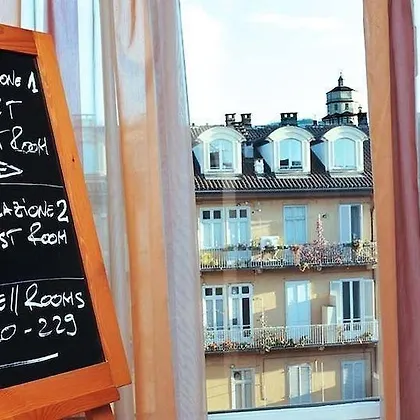 ONE 1
T
T ROOM
AZIONE 2
ST ROOM
E // ROOMS
0 - 229